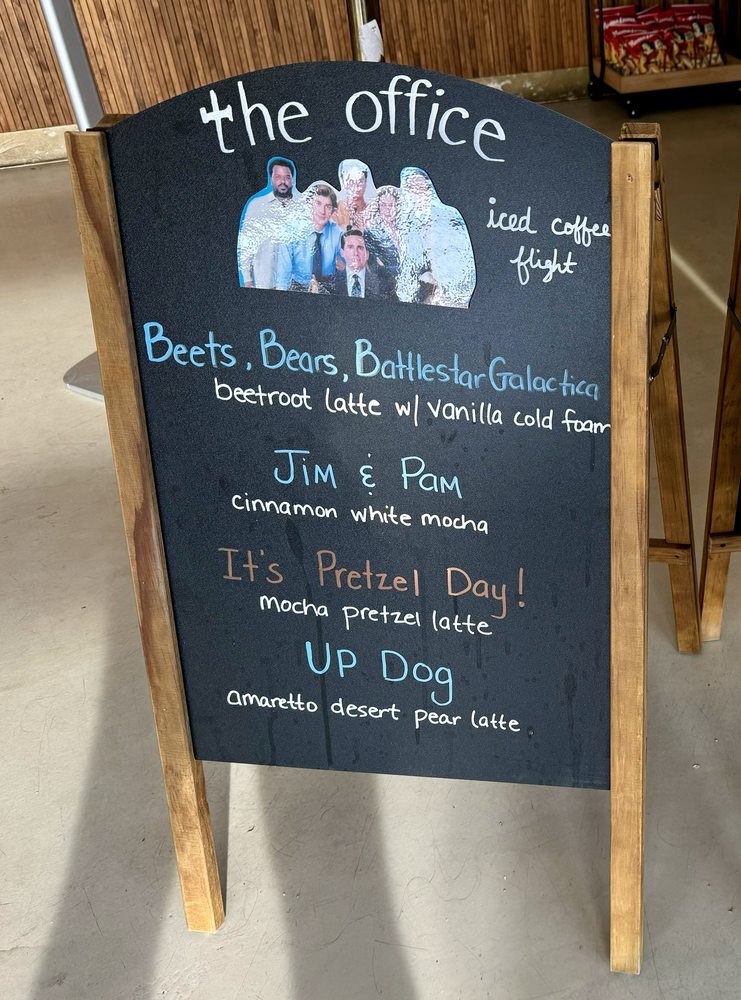 the office
iced coffee
flight
Beets, Bears, Battlestar Galactica
beetroot latte w/ vanilla cold foam
Jim & Pam
cinnamon white mocha
It's Pretzel Day!
mocha pretzel latte
UP Dog
amaretto desert pear latte